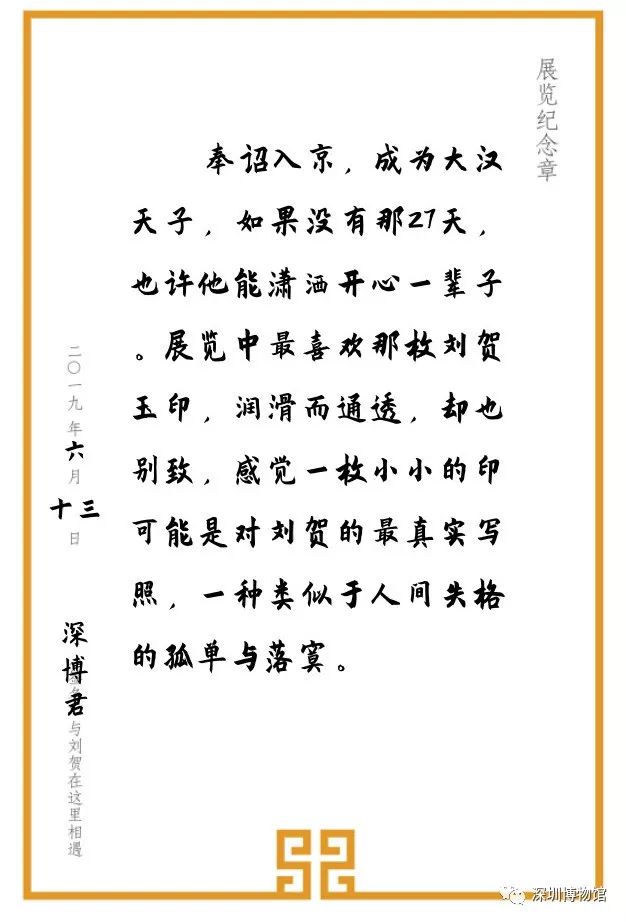 展览纪念章
奉诏入京，成为大汉
天子，如果没有那27天，
也许他能潇洒开心一辈子
。展览中最喜欢那枚刘贺
玉印，润滑而通透，却也
别致，感觉一枚小小的印
可能是对刘贺的最真实写
照，一种类似于人间失格
的孤单与落寞。
二〇一九年六月十三日
深博君
与刘贺在这里相遇
深圳博物馆